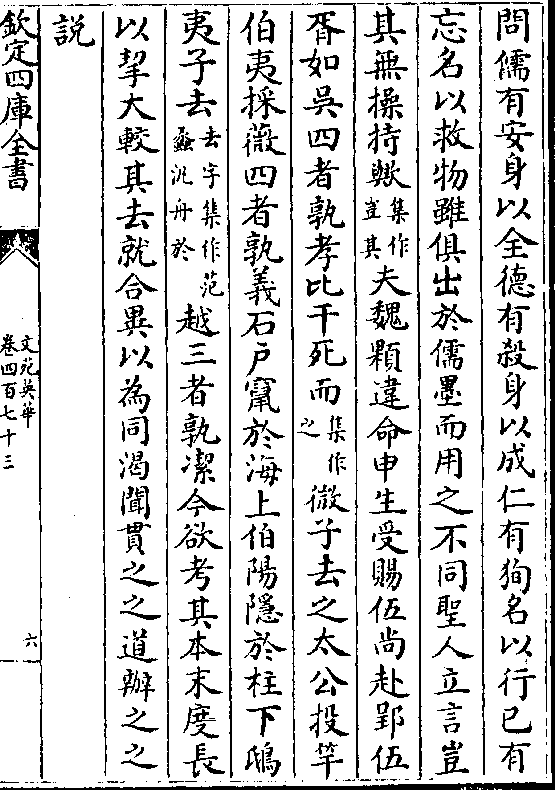 問儒有安身以全德有殺身以成仁有狥名以行已有
忘名以救物雖俱出於儒墨而用之不同聖人立言豈
其無操持歟集作豈其夫魏顆違命申生受賜伍尚赴郢伍
胥如吳四者孰孝比干死而集作之微子去之太公投竿
伯夷採薇四者孰義石戸竄於海上伯陽隱於柱下鴟
夷子去去字集作范蠡汎舟於越三者孰潔今欲考其本末度長
以挈大較其去就合異以為同渴聞貫之之道辦之之
説
欽定四庫全書
文苑英華
卷四百七十三
六